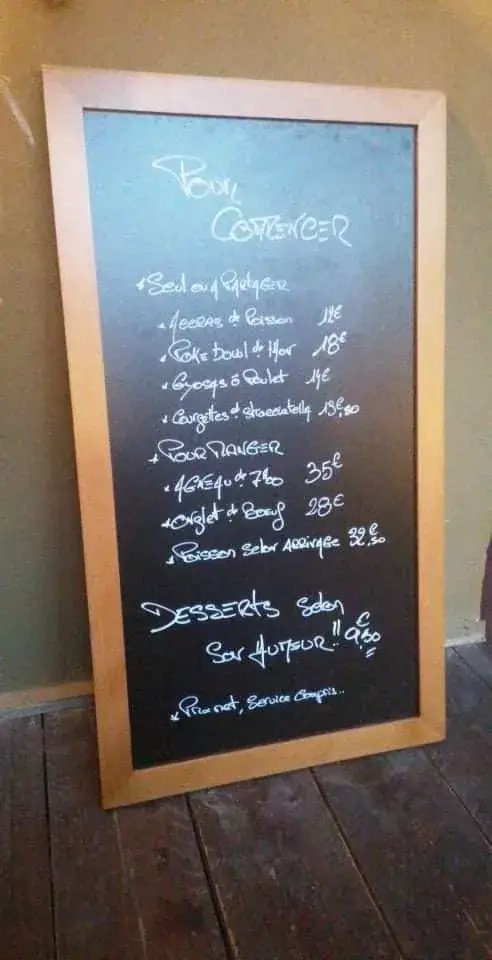 Pour
Commencer
* Seul ou à Partager
* Accras de Poisson 12€
* Poke Bowl de Thon 18€
* Gyosas ô Poulet 14€
* Courgettes & Stracciatella 13€,50
* Pour Manger
* Agneau de 7h00 35€
* Onglet de Boeuf 28€
* Poisson Selon Arrivage 32€,50
Desserts Selon
Son Auteur!! 9€,50
* Prix net, Service Compris..